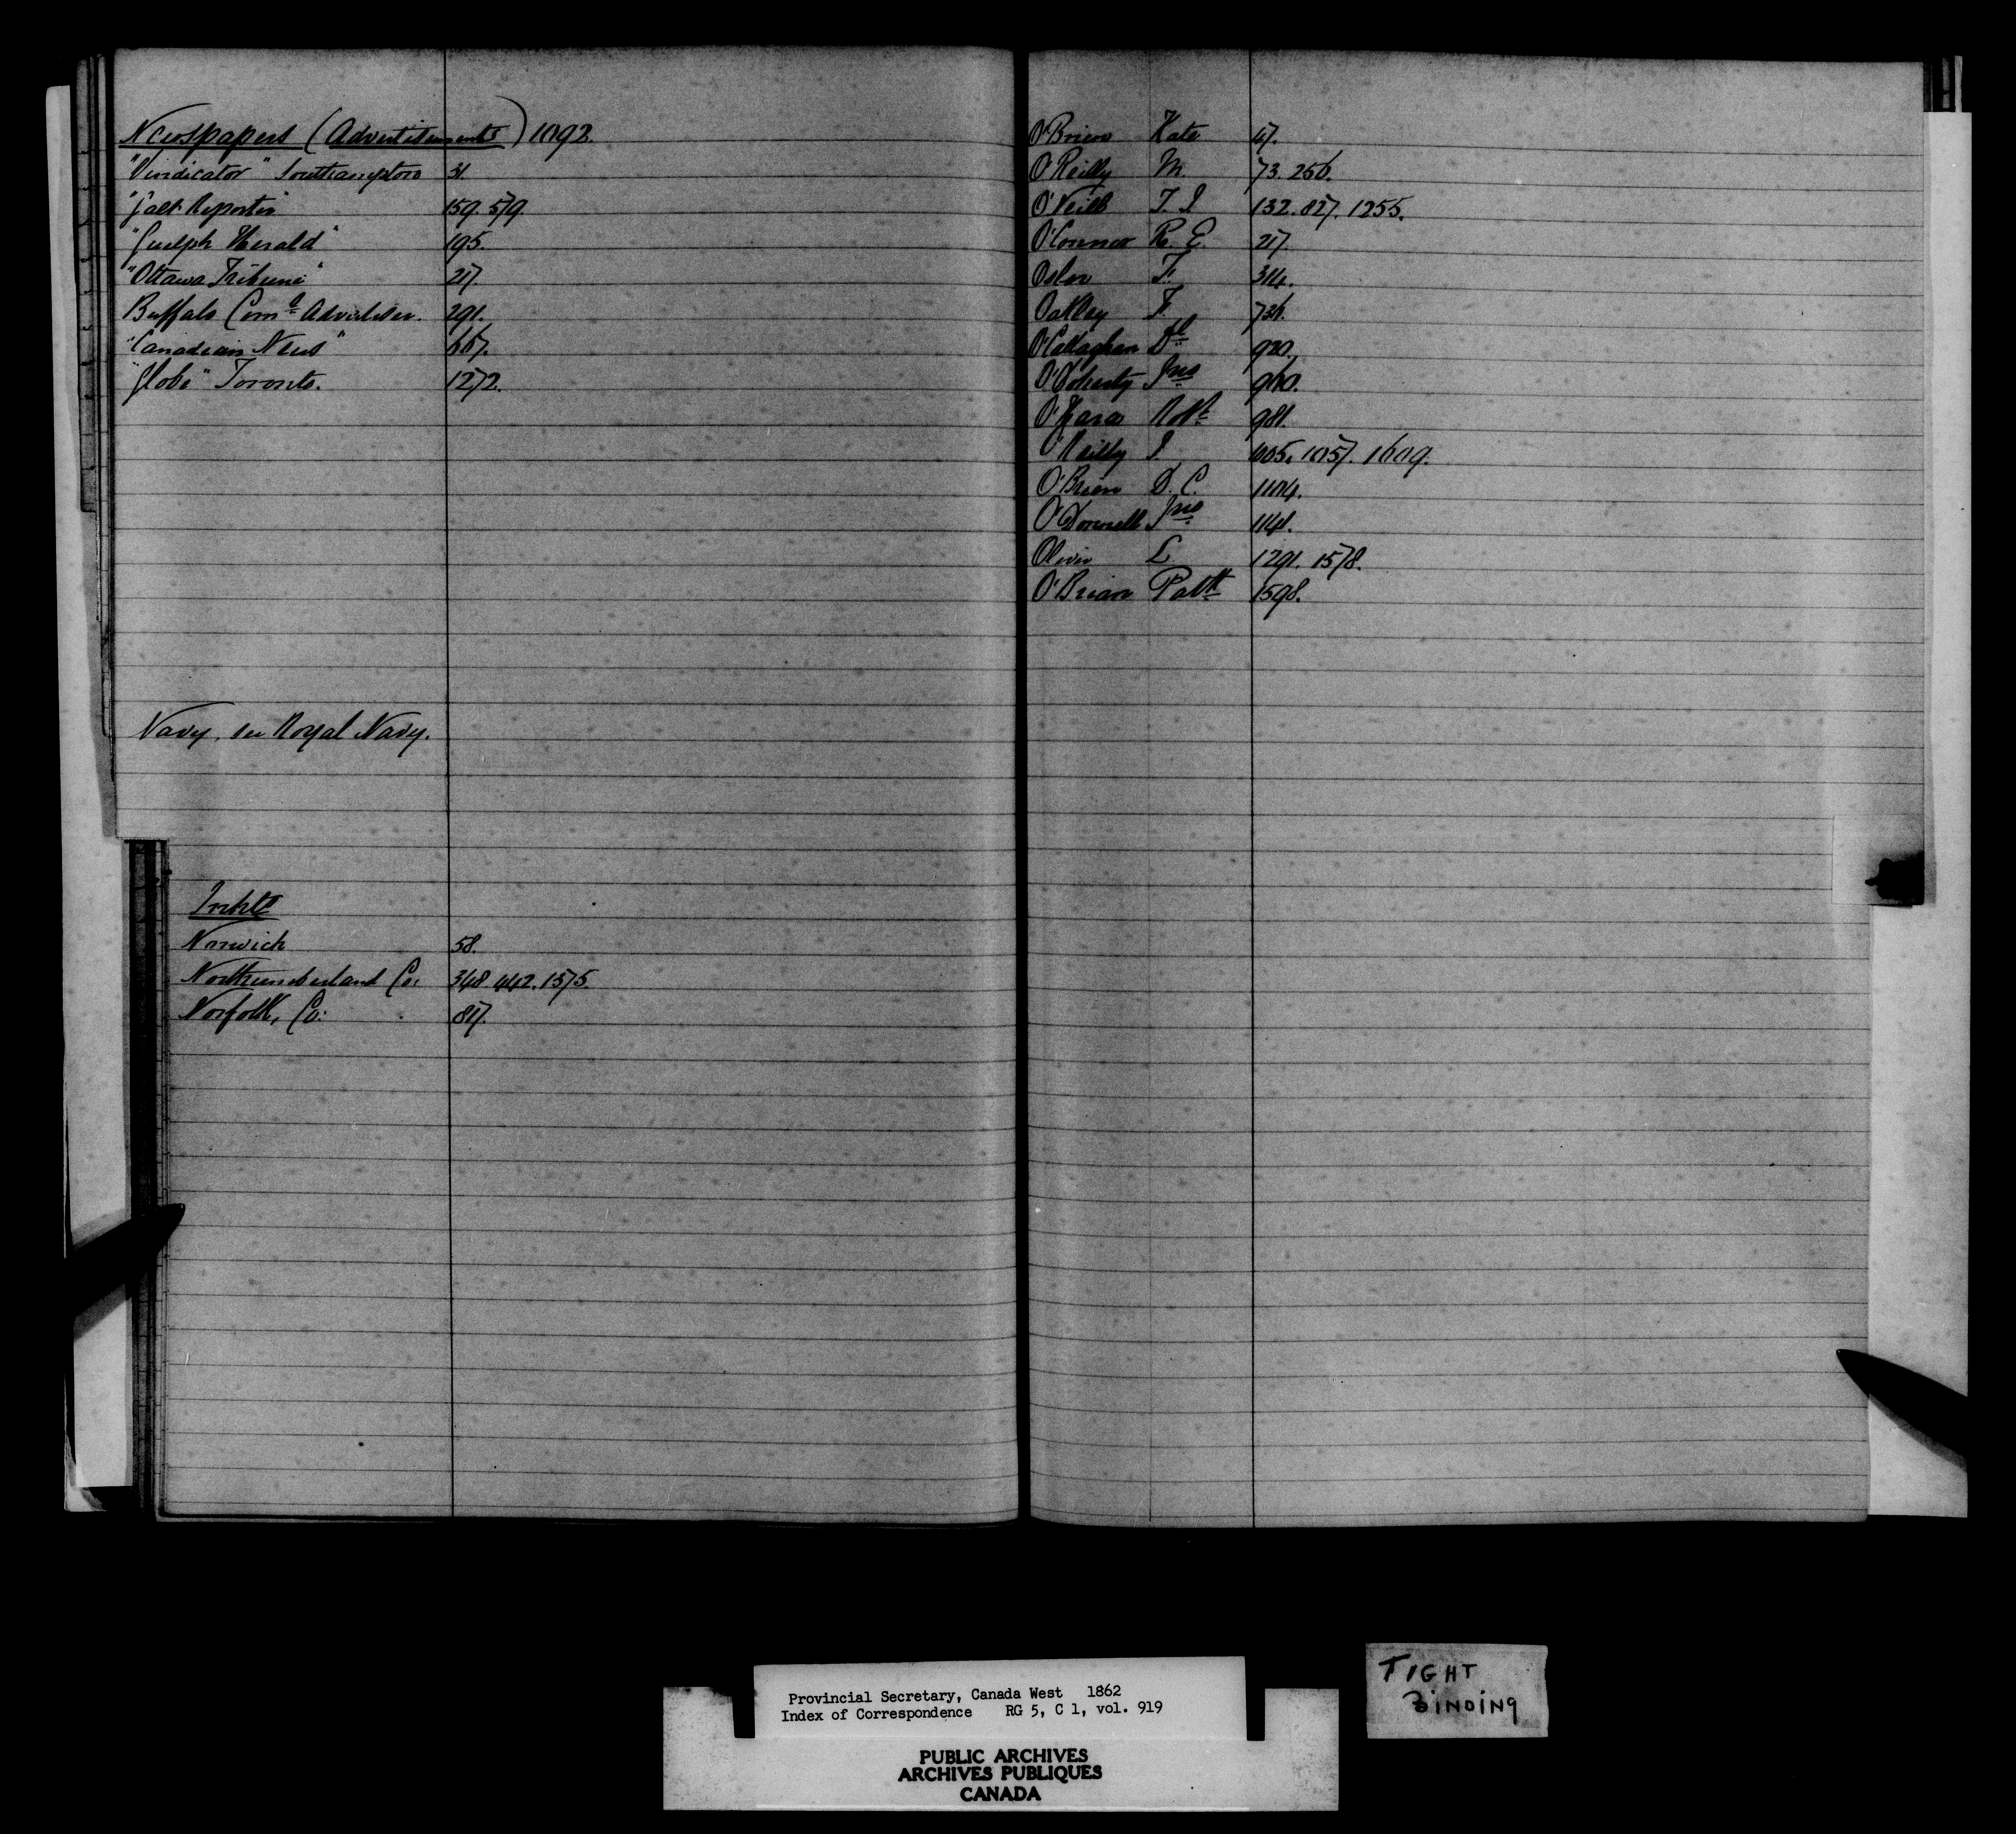 Newspapers (Advertisements) 1092.
"Vindicator" Southampton 31.
"Galt Reporter" 159. 579.
"Guelph Herald" 195.
"Ottawa Tribune" 217.
Buffalo Com.l Advertiser. 291.
"Canadian News" 667.
"Globe" Toronto. 1272.
Navy, see Royal Navy.
Inhbts
Norwich 58.
Northumberland Co: 348. 442. 1575.
Norfolk, Co: 817.
O'Brien Kate 47.
O'Reilly M 73. 256.
O'Neill T. J. 132. 827. 1255.
O'Connor R. E. 217.
Osler F. 314.
Oakley F. 736.
O'Callaghan Dl 920.
O'Doherty Jno 960.
O'Hara Robt 981.
O'Reilly J. 1005. 1057. 1609.
O'Brien D. C. 1104.
O'Donnell Jno 1141.
Oliver L. 1291. 1578.
O'Brian Patk 1598.
Provincial Secretary, Canada West 1862
Index of Correspondence RG 5, C 1, vol. 919
PUBLIC ARCHIVES
ARCHIVES PUBLIQUES
CANADA
TIGHT
BINDING